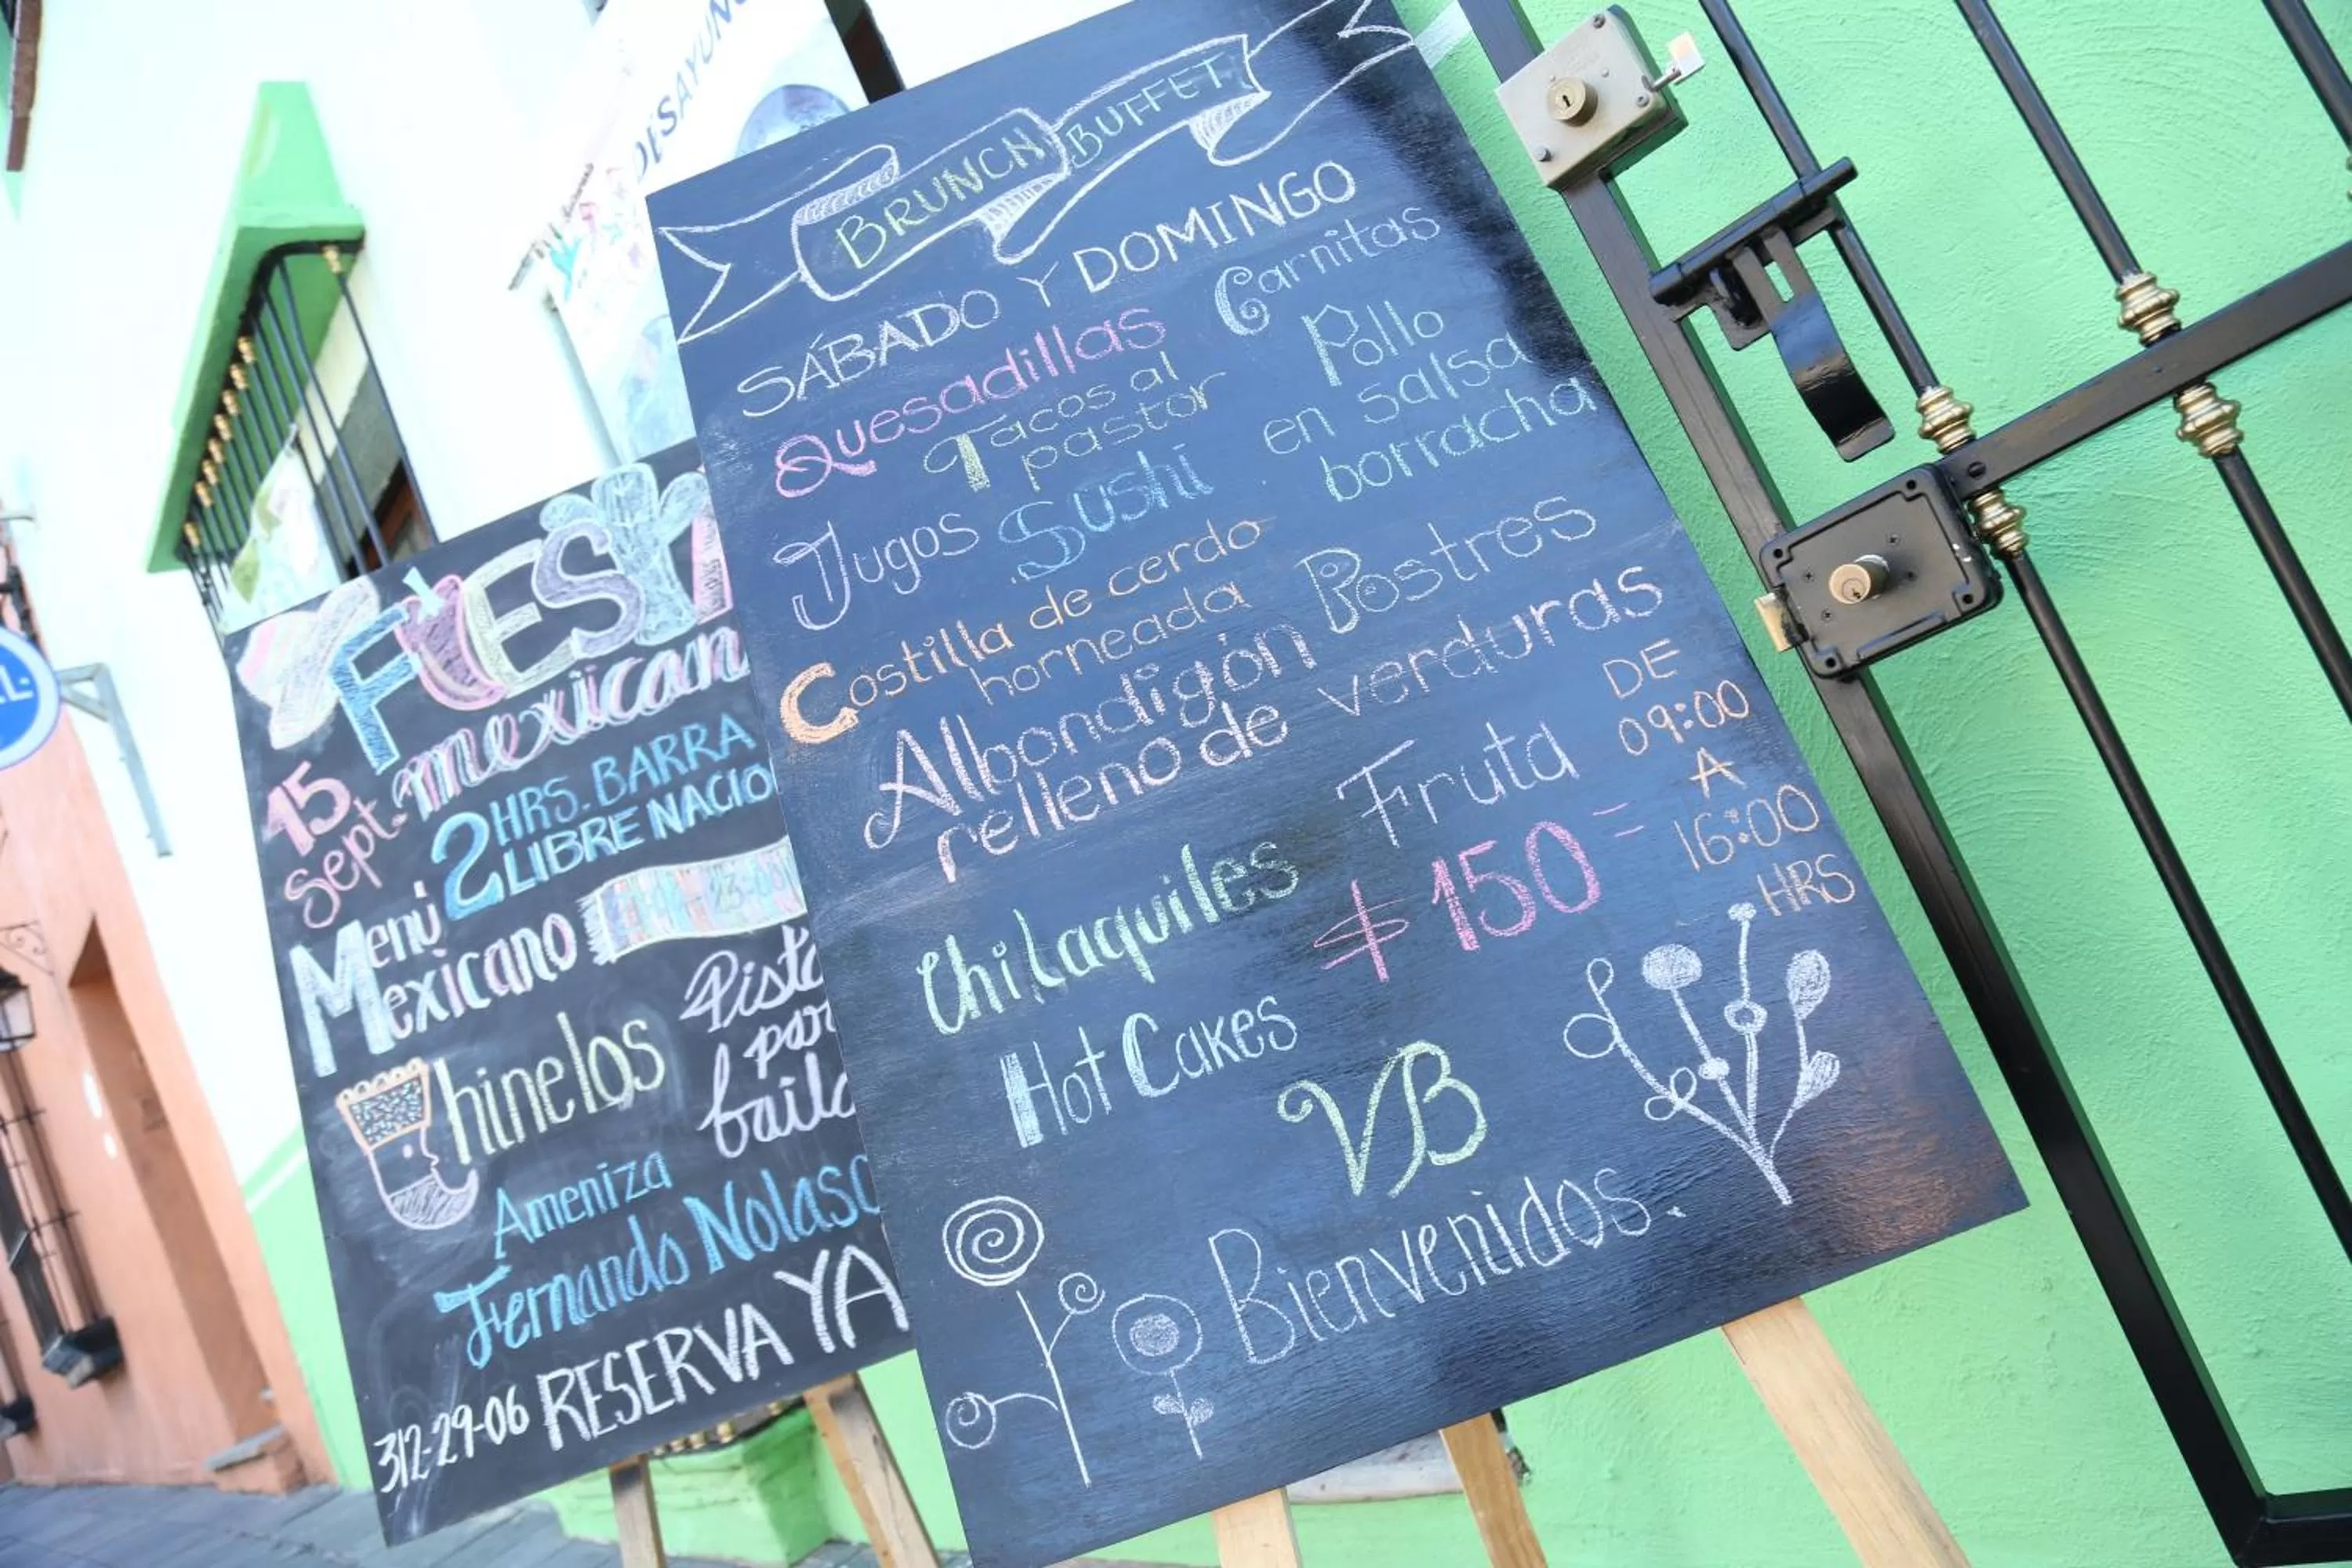 DESAYUNO
BRUNCH BUFFET
SÁBADO Y DOMINGO
Quesadillas
Carnitas
Tacos al
pastor
Pollo
en salsa
borracha
Jugos
Sushi
Costilla de cerdo
horneada
Postres
Albondigón
relleno de verduras
Fruta
DE
09:00
A
16:00
HRS
Chilaquiles
$150=
Hot Cakes
VB
Bienvenidos.
FIEST
mexican
15
Sept.
2 HRS. BARRA
LIBRE NACIO
Menú
Mexicano
23:00
Chinelos
Pista
par
baila
Ameniza
Fernando Nolasc
RESERVA YA
312-29-06
L.